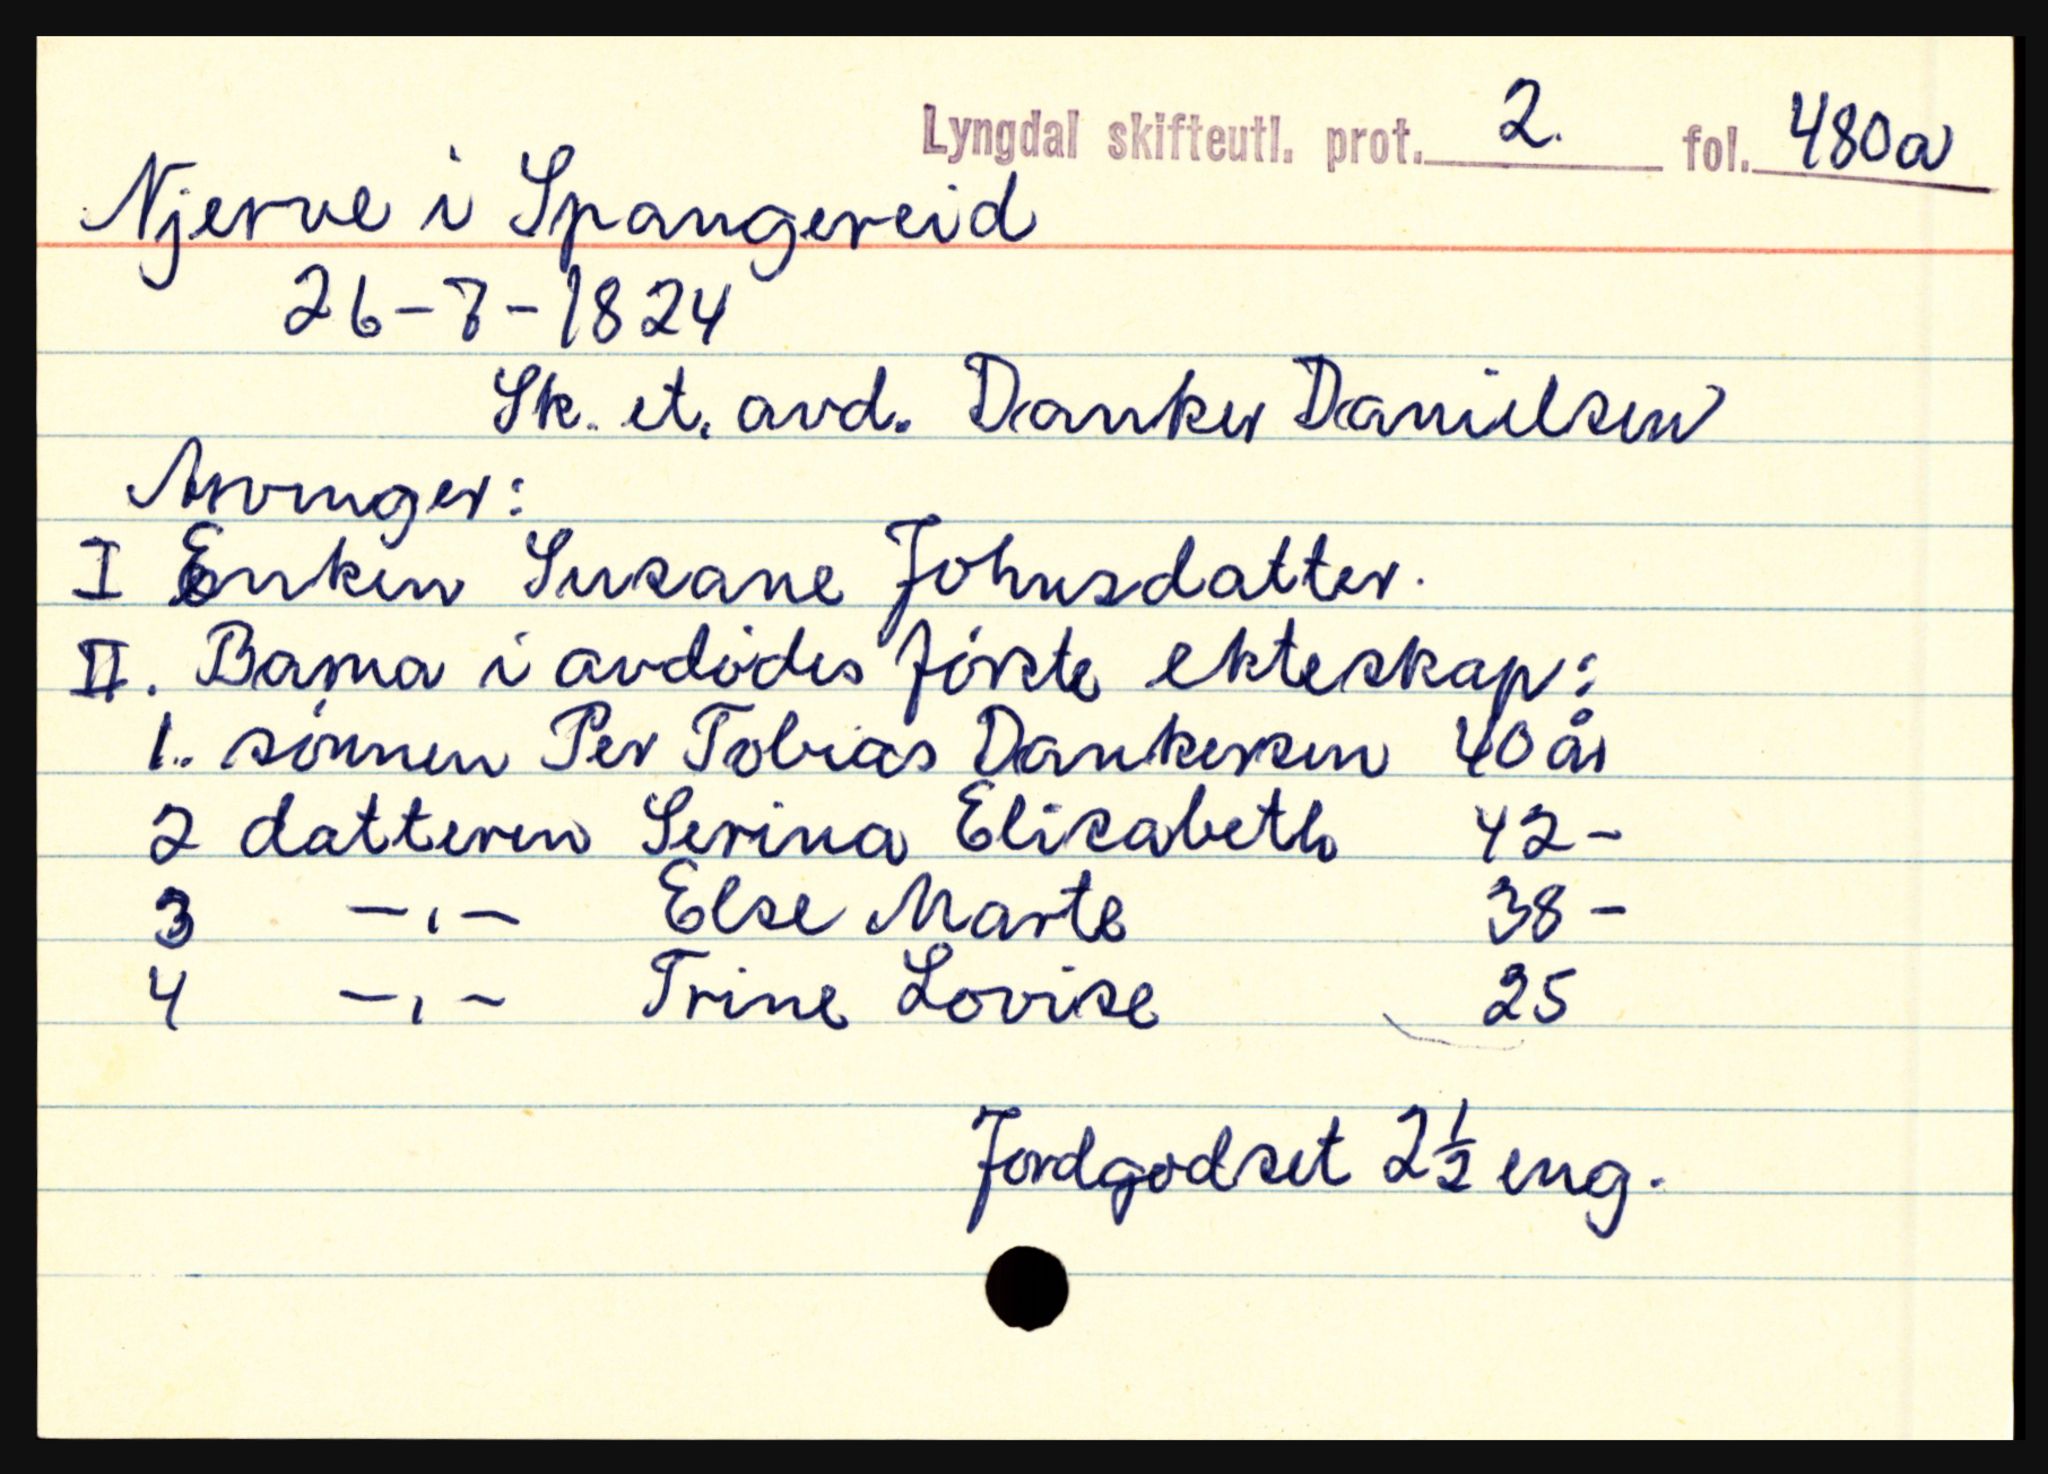 Lyngdal skifteutl. prot. 2. fol. 480a
Njerve i Spangereid
26-7-1824
Sk. et. avd. Danker Danielsen
Arvinger:
I Enken Susane Johnsdatter.
II. Barna i avdødes første ekteskap:
1.. sønnen Per Tobias Dankersen 40 år
2 datteren Serina Elisabeth 42 -
3 -,- Else Marte 38 -
4 -,- Trine Lovise 25
Jordgodset 2½ eng.